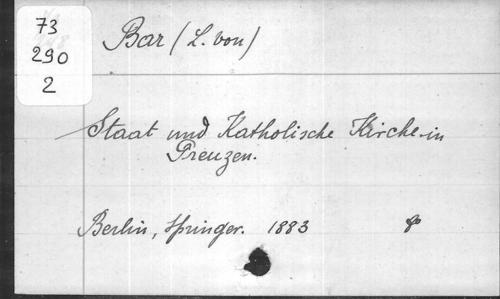 73
290
2
Bar (L. von)
Staat und Katholische Kirche in
Preuzen.
Berlin, Springer. 1883